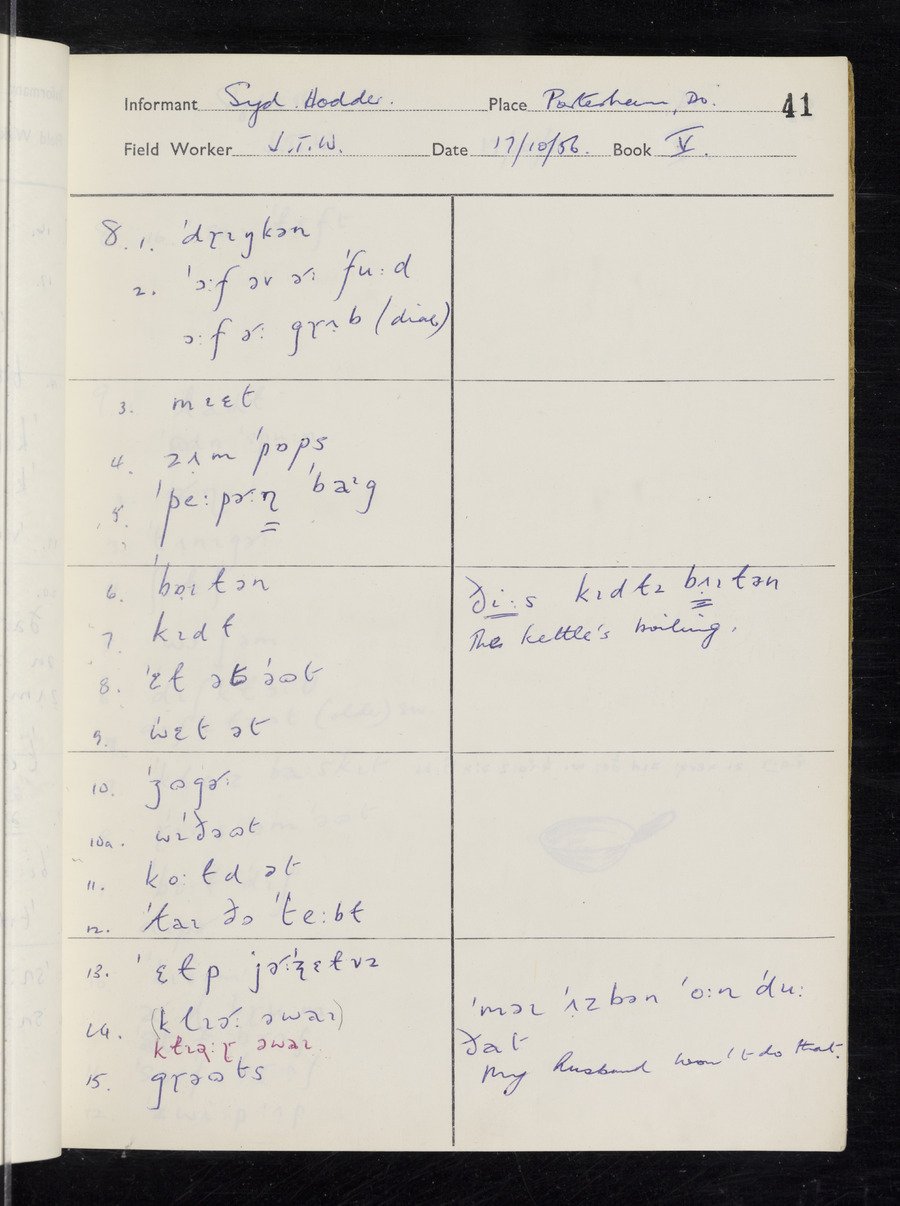 Informant Syd. Hodder. Place Portesham, Do. 41
Field Worker J.T.W. Date 17/10/56. Book V.
8. 1. ˈdɽɪŋkən
2. ˈɔ:f əv ɚ: ˈfu:d
ɔ:f ɚ: gɽʌb (dial)
3. mɪɛt
4. zʌm ˈpɒps
5. ˈpe:pɚ:n̩ ˈbaɪg
6. ˈbɒɪɫən
7. kɪdɫ
8.
9. ˈwɛt ət
10. ˈʒɒgɚ:
10a. wɪˈðəʊt
11. ko:ɫd ət
12. ˈɫaɪ ðə ˈte:bɫ
13. ˈɛɫp jɚ:ˈzɛɫvz
14. (kɫɪɚ: əwaɪ)
əwaɪ
15. gɽəʊts
ði::s kɪdɫz bʌɪɫən
The kettle's boiling.
ˈməɪ ˈʌzbən ˈo:n ˈdu:
ðat
My husband won't do that.